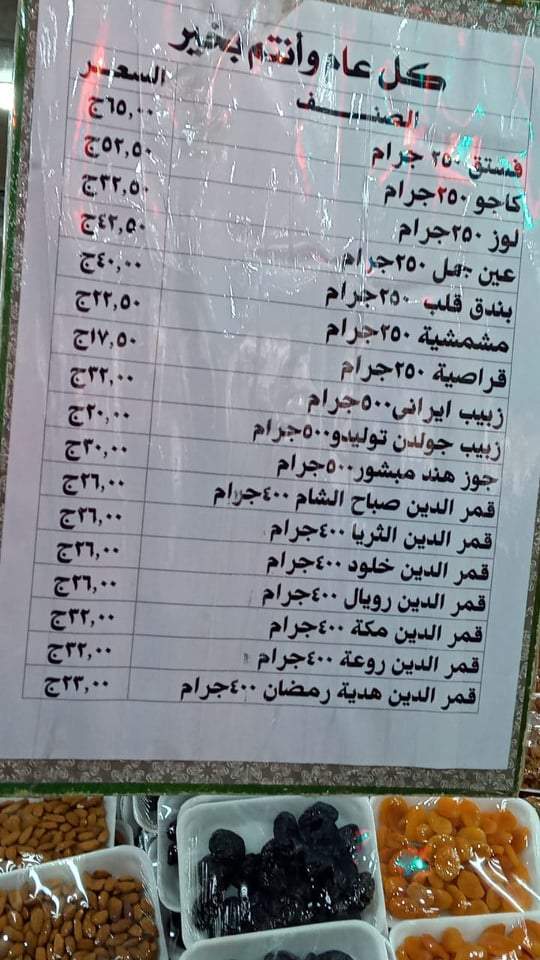 كل عام وأنتم بخير
الصنــــــف السعـــر
فستق ٢٥٠ جرام ٦٥,٠٠ج
كاجو ٢٥٠جرام ٥٢,٥٠ج
لوز ٢٥٠جرام ٣٢,٥٠ج
عين جمل ٢٥٠جرام ٤٢,٥٠ج
بندق قلب ٢٥٠جرام ٤٠,٠٠ج
مشمشية ٢٥٠جرام ٢٢,٥٠ج
قراصية ٢٥٠جرام ١٧,٥٠ج
زبيب ايرانى٥٠٠جرام ٣٢,٠٠ج
زبيب جولدن توليدو٥٠٠جرام ٢٠,٠٠ج
جوز هند مبشور٥٠٠جرام ٣٠,٠٠ج
قمر الدين صباح الشام ٤٠٠جرام ٢٦,٠٠ج
قمر الدين الثريا ٤٠٠جرام ٢٦,٠٠ج
قمر الدين خلود ٤٠٠جرام ٢٦,٠٠ج
قمر الدين رويال ٤٠٠جرام ٢٦,٠٠ج
قمر الدين مكة ٤٠٠جرام ٣٢,٠٠ج
قمر الدين روعة ٤٠٠جرام ٣٢,٠٠ج
قمر الدين هدية رمضان ٤٠٠جرام ٢٣,٠٠ج